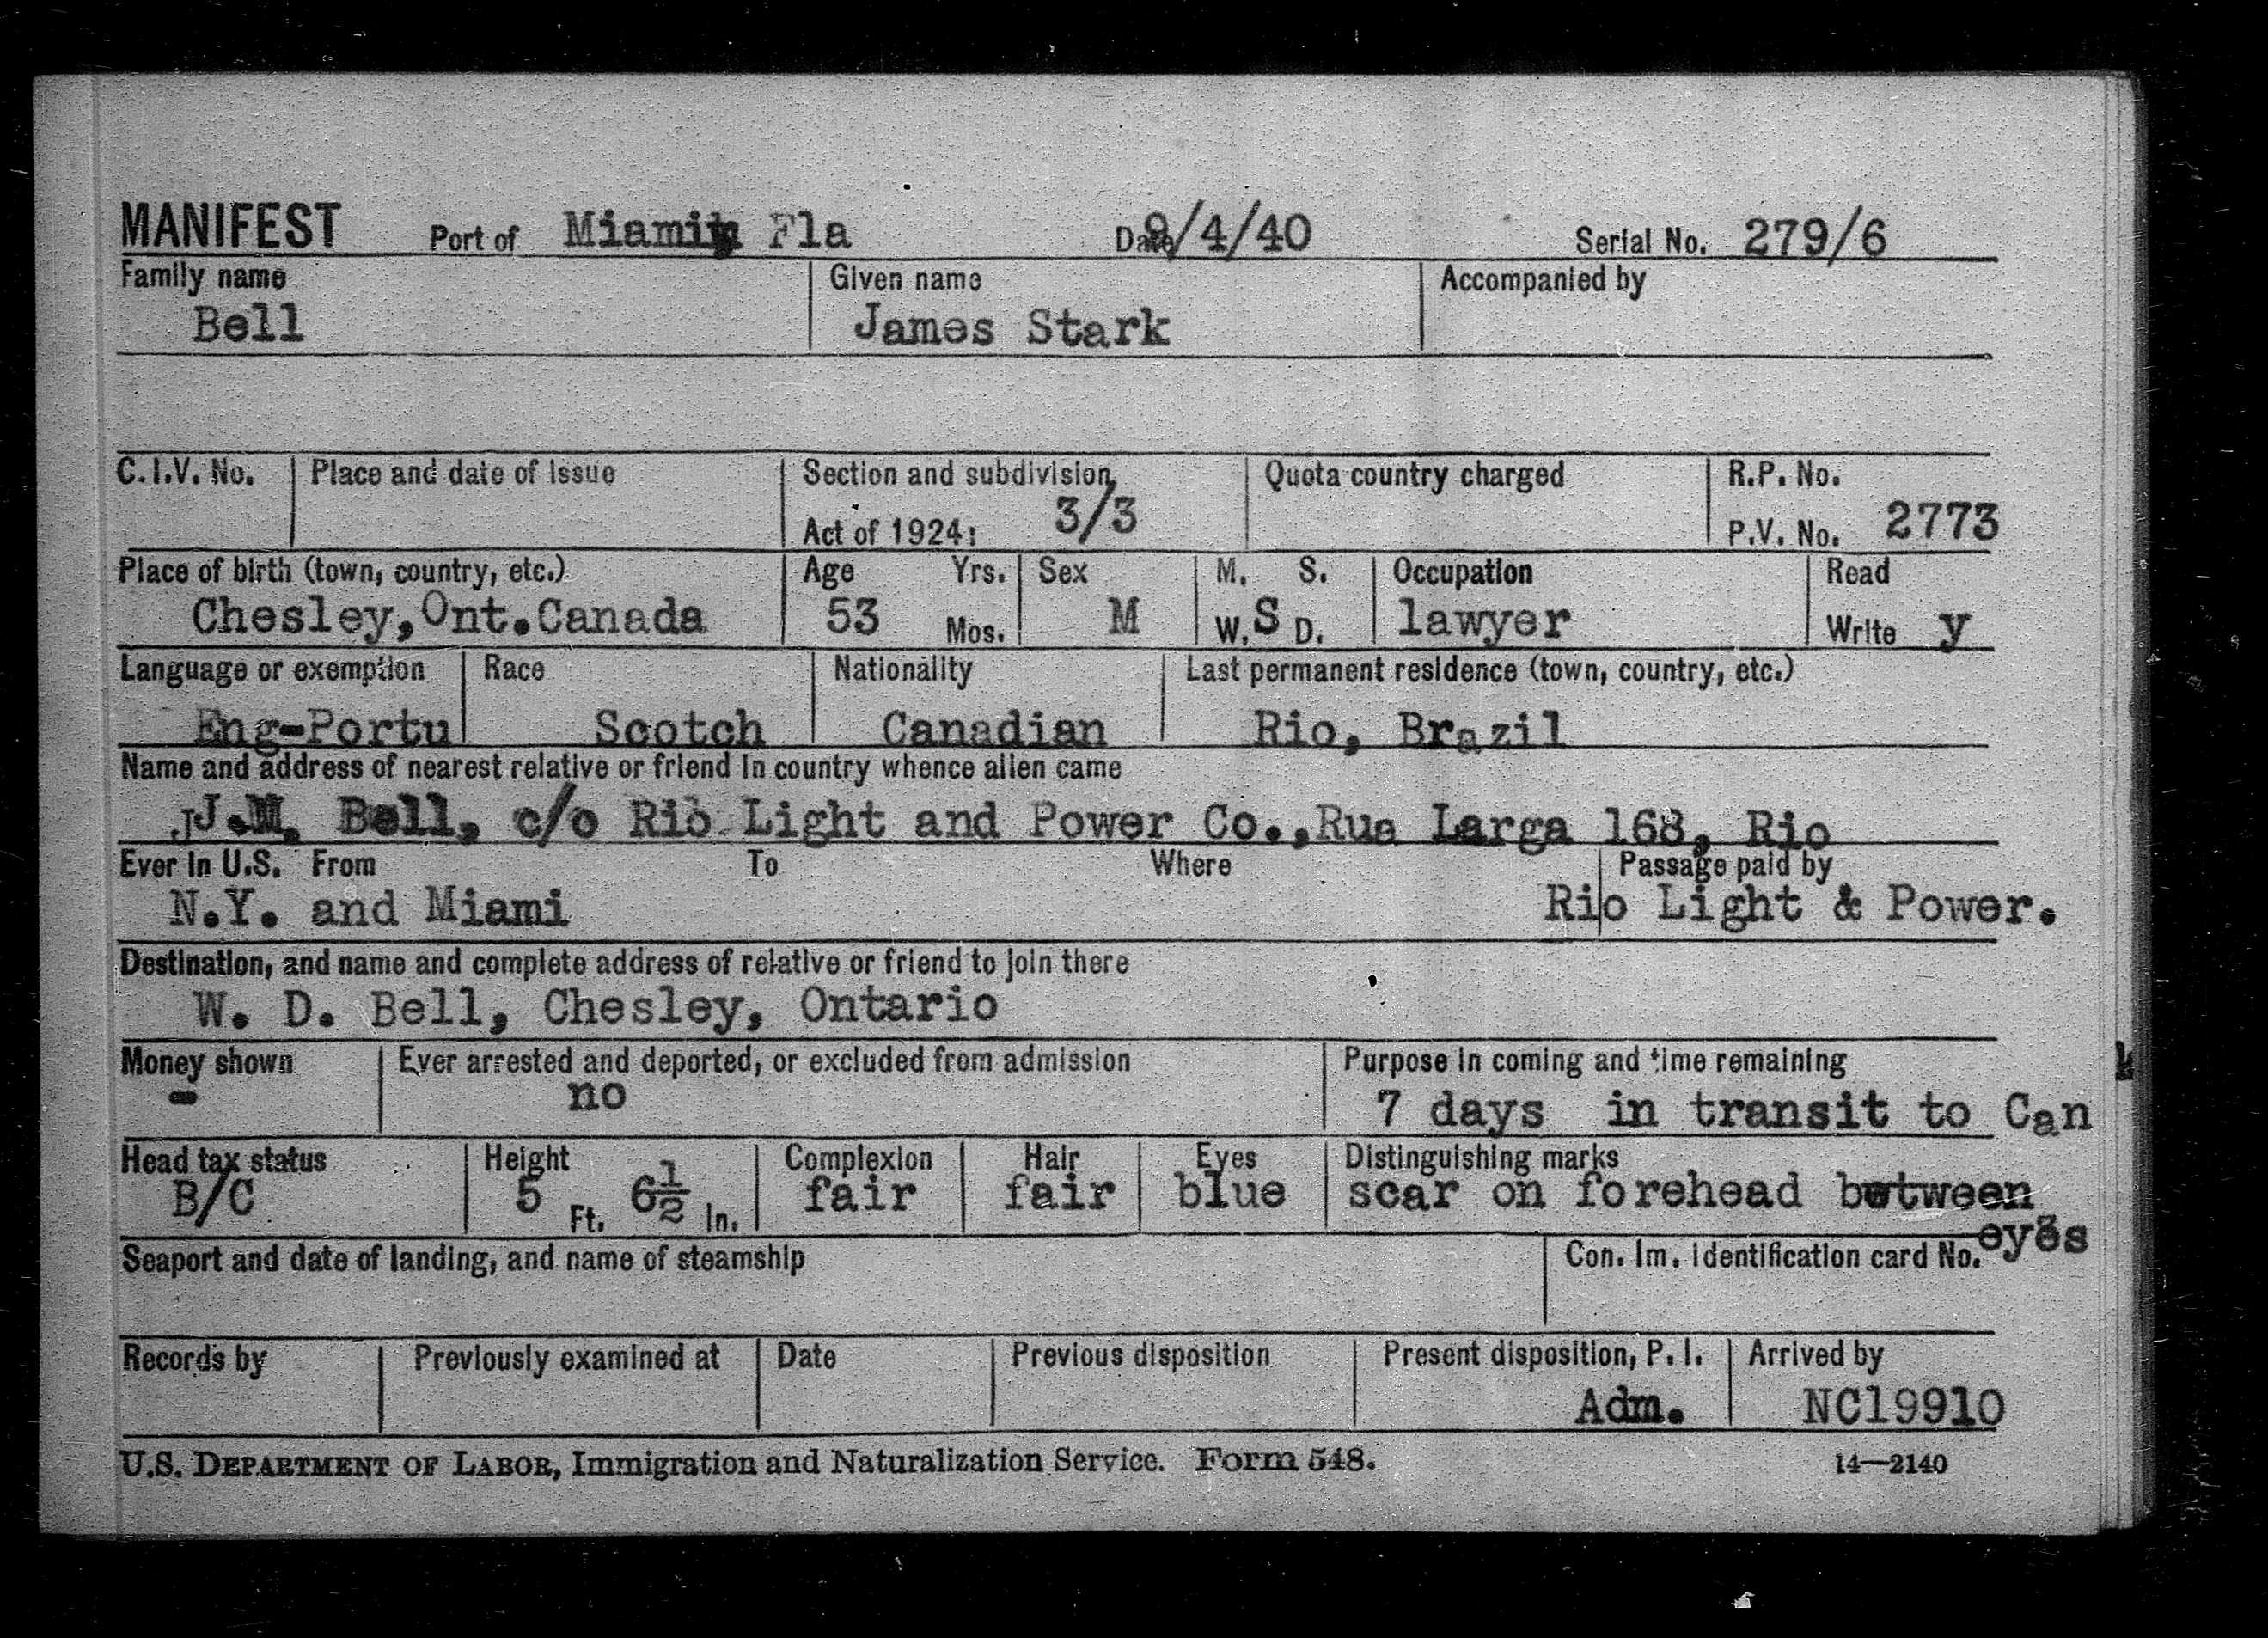 MANIFEST Port of Miami, Fla Date 9/4/40 Serial No. 279/6
Family name Given name Accompanied by
Bell James Stark
C.I.V. No. Place and date of issue Section and subdivision, Quota country charged R.P. No.
Act of 1924: 3/3 P.V. No. 2773
Place of birth (town, country, etc.) Age Yrs. Sex M. S. Occupation Read
Chesley,Ont.Canada 53 Mos. M W. S D. lawyer Write y
Language or exemption Race Nationality Last permanent residence (town, country, etc.)
Eng-Portu Scotch Canadian Rio, Brazil
Name and address of nearest relative or friend in country whence alien came
J.M. Bell, c/o Rio Light and Power Co.,Rua Larga 168, Rio
Ever in U.S. From To Where Passage paid by
N.Y. and Miami Rio Light & Power.
Destination, and name and complete address of relative or friend to join there
W. D. Bell, Chesley, Ontario
Money shown Ever arrested and deported, or excluded from admission Purpose in coming and time remaining
- no 7 days in transit to Can
Head tax status Height Complexion Hair Eyes Distinguishing marks
B/C 5 Ft. 6½ In. fair fair blue scar on forehead between
eyes
Seaport and date of landing, and name of steamship Con. Im. Identification card No.
Records by Previously examined at Date Previous disposition Present disposition, P. I. Arrived by
Adm. NC19910
U.S. DEPARTMENT OF LABOR, Immigration and Naturalization Service. Form 548. 14—2140